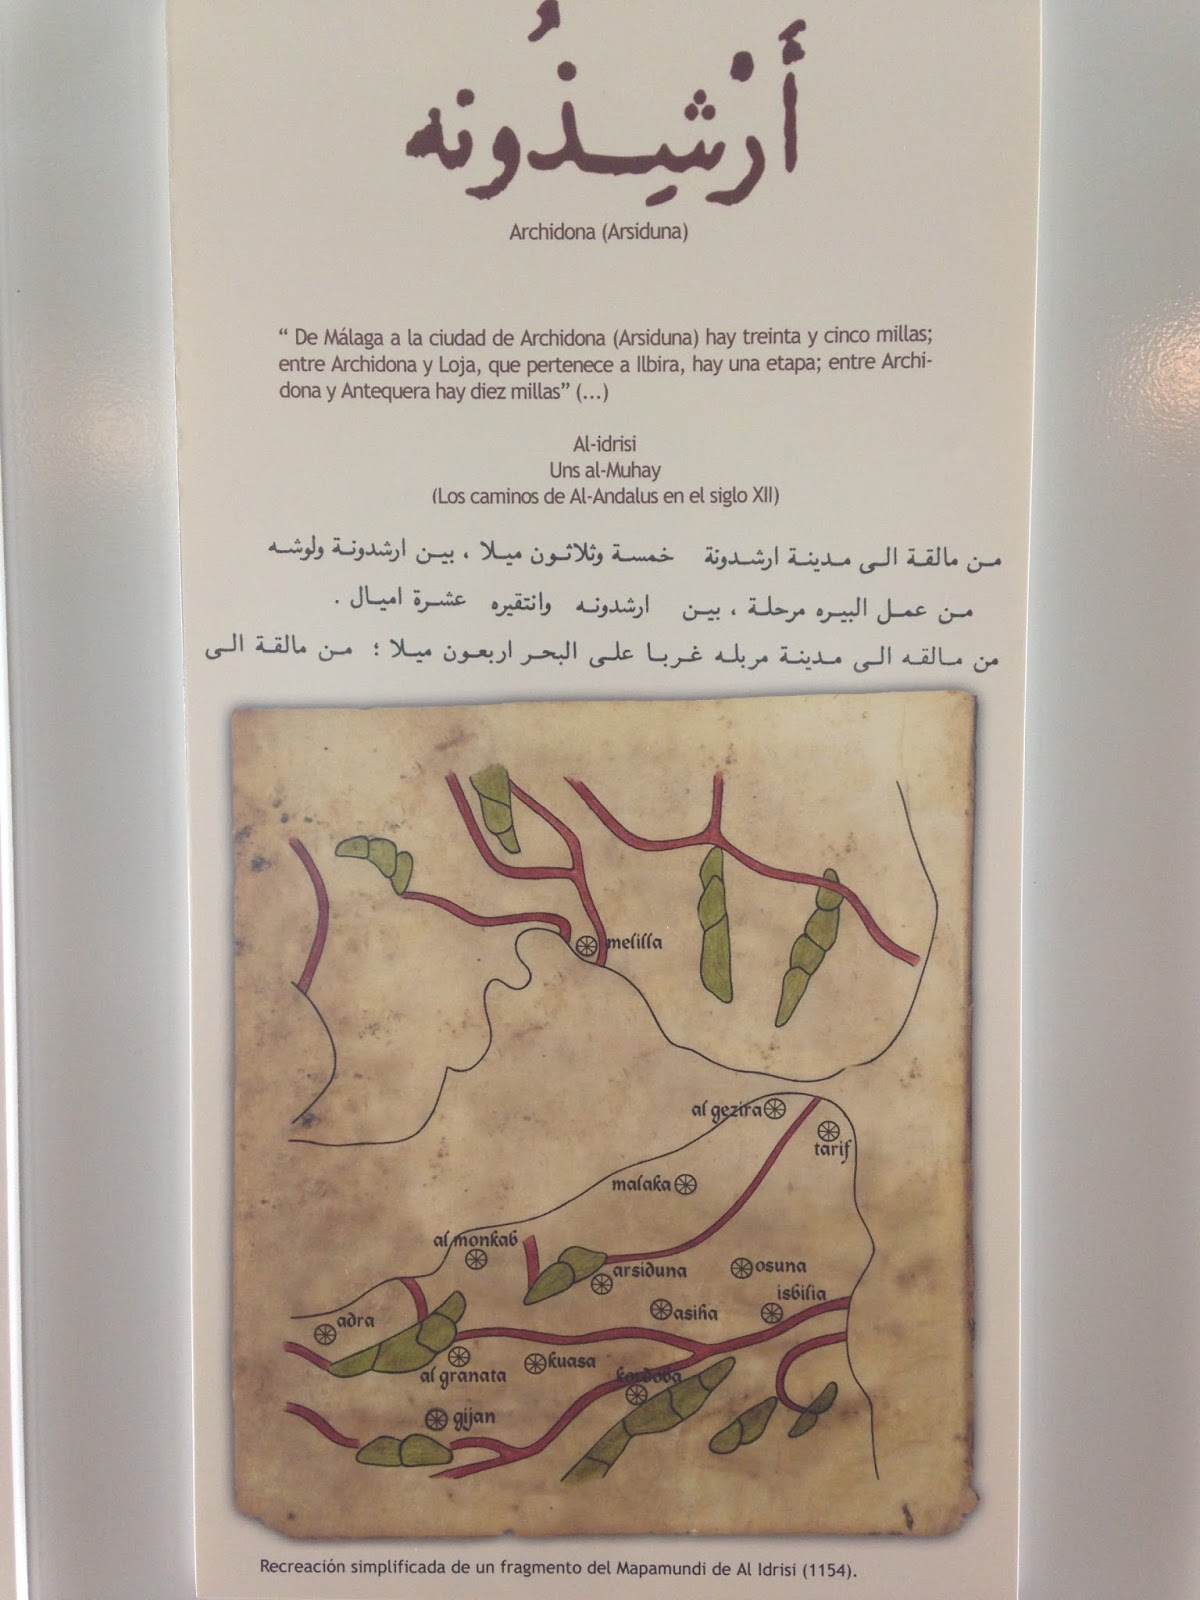 أرْشيذُونه
Archidona (Arsiduna)
“ De Málaga a la ciudad de Archidona (Arsiduna) hay treinta y cinco millas;
entre Archidona y Loja, que pertenece a Ilbira, hay una etapa; entre Archi-
dona y Antequera hay diez millas” (...)
Al-idrisi
Uns al-Muhay
(Los caminos de Al-Andalus en el siglo XII)
من مالقة الى مدينة ارشدونة خمسة وثلاثون ميلا ، بين ارشدونة ولوشه
من عمل البيره مرحلة ، بين ارشدونه وانتقيره عشرة اميال .
من مالقه الى مدينة مربله غربا على البحر اربعون ميلا ؛ من مالقة الى
melilla
al gezira
tarif
malaka
al monkab
arsiduna
osuna
isbilia
asiha
adra
kuasa
al granata
kordoba
gijan
Recreación simplificada de un fragmento del Mapamundi de Al Idrisi (1154).